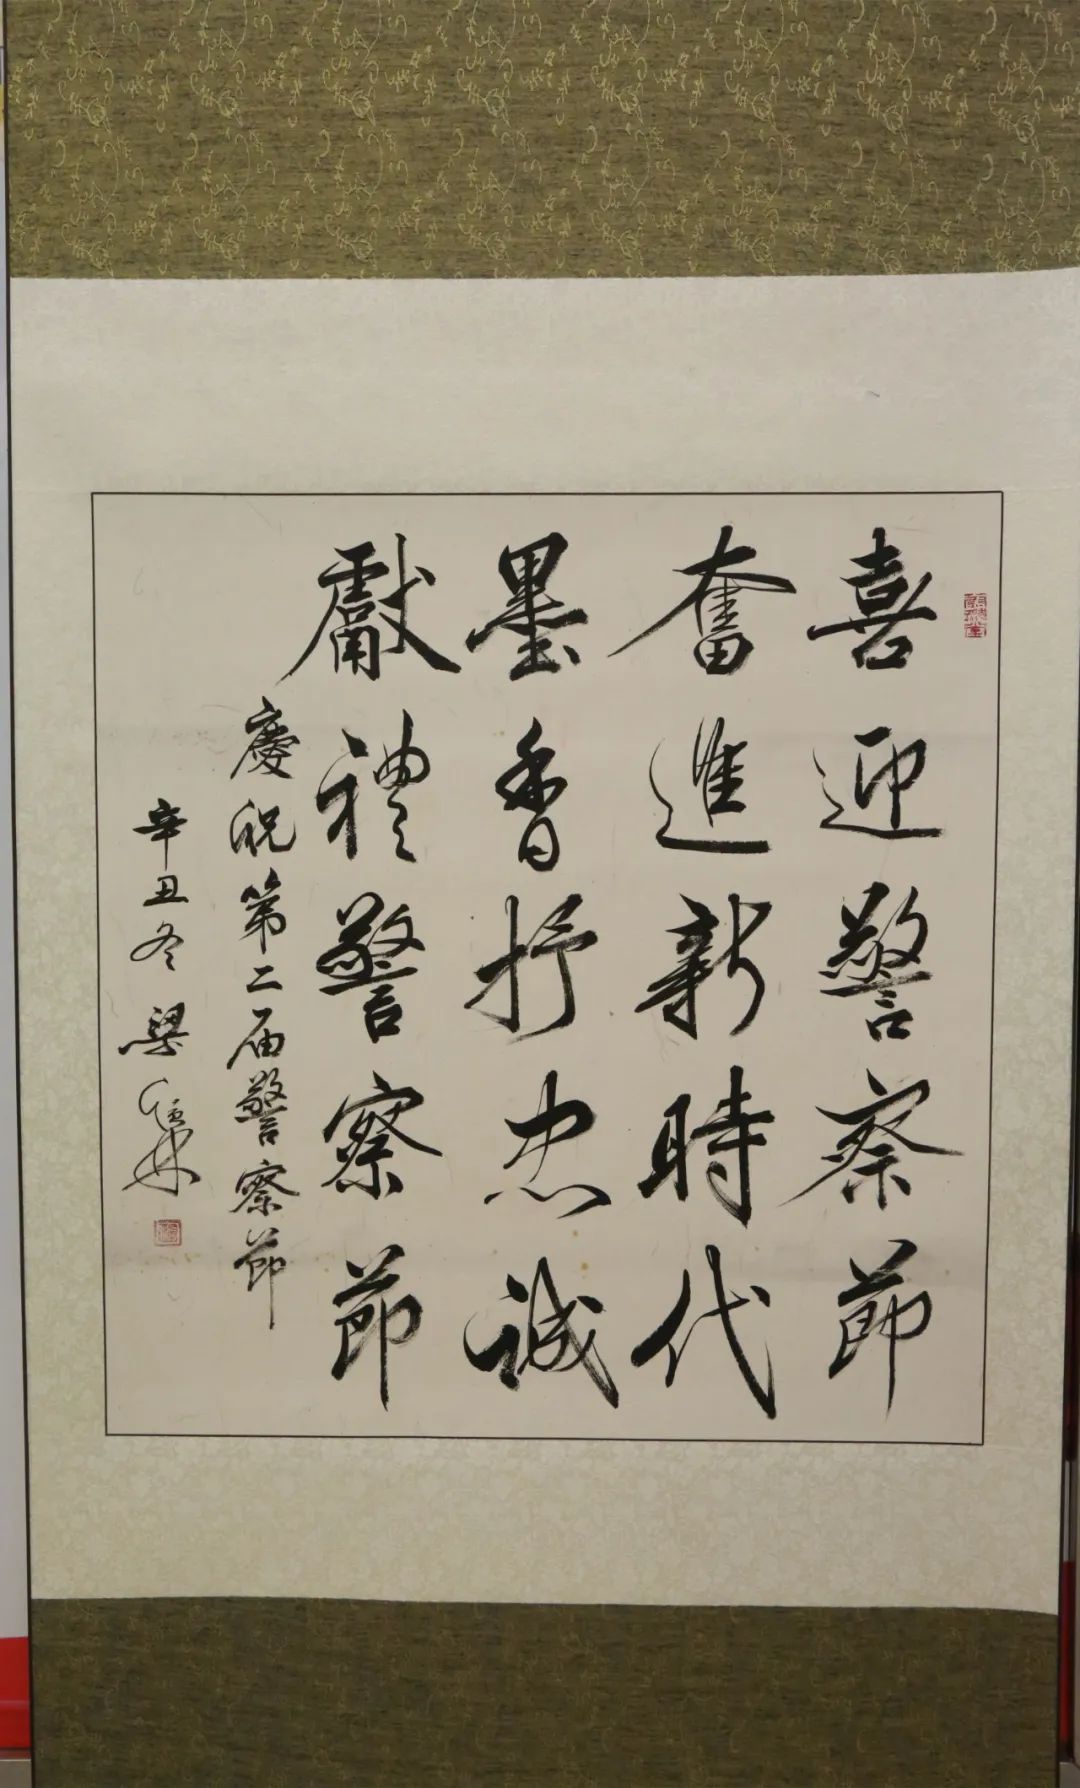 喜迎警察節
奮進新時代
墨香抒忠誠
獻禮警察節
慶祝第二届警察節
辛丑冬梁